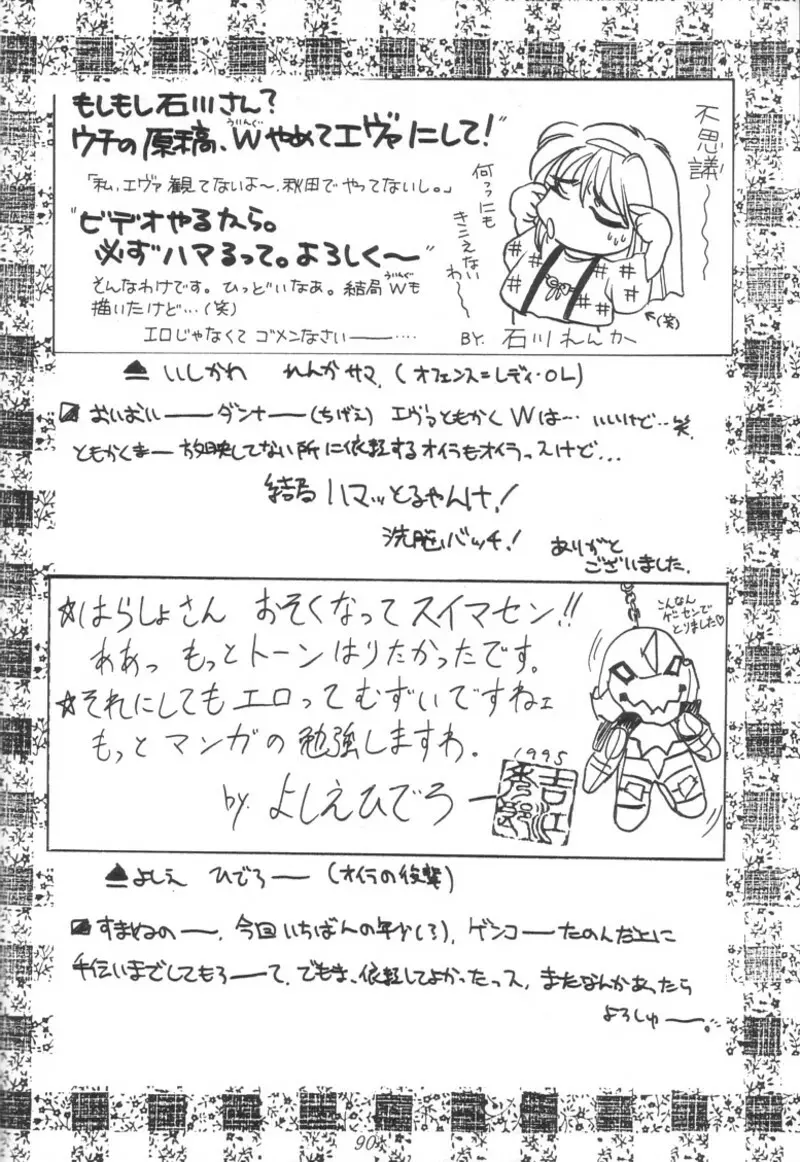 もしもし石川さん?
ウチの原稿、Wやめてエヴァにして!"
ういんぐ
「私、エヴァ観てないよ〜、秋田でやってないし。」
"ビデオやるから。
必ずハマるって。よろしく〜"
そんなわけです。ひっどいなあ。結局Wも
ういんぐ
描いたけど…(笑)
エロじゃなくてゴメンなさい――…
不思議〜〜
何っにも
きこえない
わ〜〜
(笑)
BY. 石川れんか
▲ いしかわ れんかサマ (オフェンス=レディ・OL)
おいおい――ダンナ――(ちげえ) エヴァともかく Wは… いいけど…笑
ともかくまー 放映してない所に依頼するオイラもオイラっスけど…
結局ハマッとるやんけ!
洗脳バッチ!
ありがと
ございました。
☆はらしょさん おそくなってスイマセン!!
ああっ もっとトーンはりたかったです。
☆それにしてもエロってむずいですねェ
もっとマンガの勉強しますわ。
by. よしえひでろー
1995
こんなん
ゲーセンで
とりました♡
▲よしえ ひでろ―― (オイラの後輩)
すまねぇの――、今回いちばんの年少(?)、ゲンコ――たのんだ上に
手伝いまでしてもろ――て、でもま、依頼してよかったっス、またなんかあったら
よろしゅ――。
90